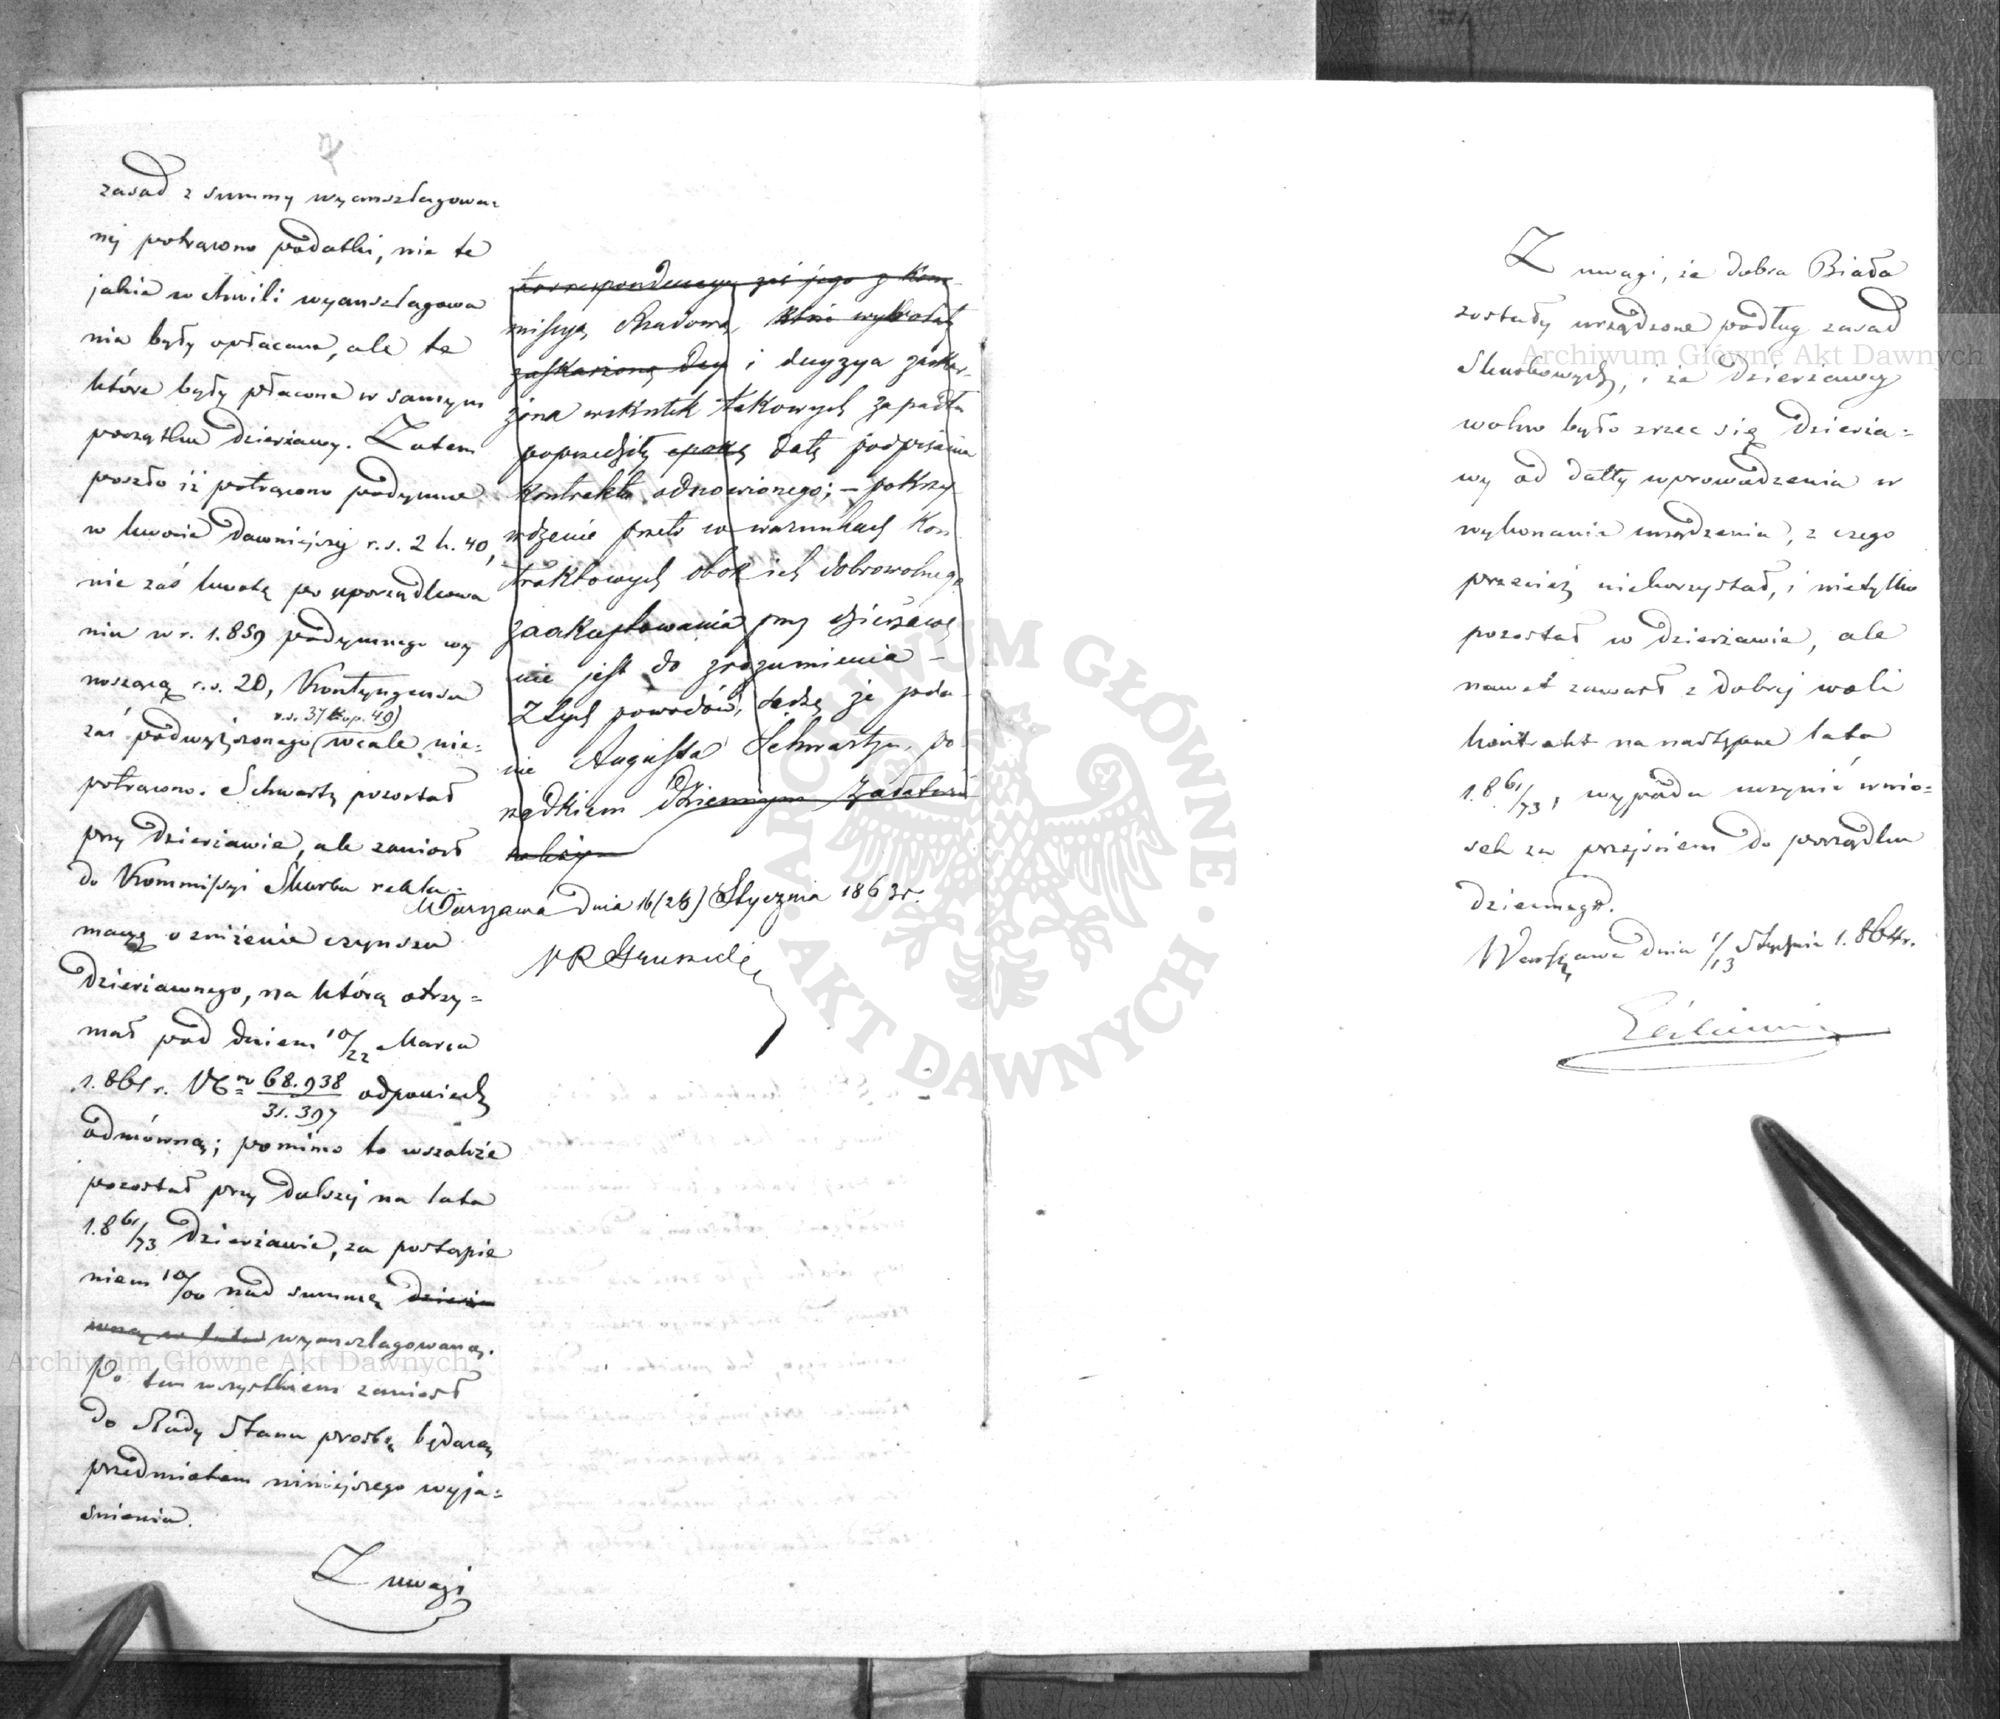 7
zasad z summy wyanszlagowa=
nej potrącono podatki, nie te
jakie w chwili wyanszlagowa
nia były opłacane, ale te
które były płacone w samym
początku dzierżawy. Zatem
poszło iż potrącono podymne
w kwocie dawniejszej r.s. 2 k. 40,
nie zaś kwotę po uporządkowa
niu w r. 1.859 podymnego wy
noszącą r.s. 20, Kontyngensu
r.s. 37 kop. 49)
zaś podwyższonego (wcale nie=
potrącono. Schwartz pozostał
przy dzierżawie, ale zaniosł
do Kommissyi Skarbu rekla=
macyę o zniżenie czynszu
dzierżawnego, na którą otrzy=
mał pod dniem 10/22 Marca
1.861 r. No 68.938/31.397 odpowiedź
odmówną; pomimo to wszakże
pozostał przy dalszej na lata
1.861/73 dzierżawie, za postąpie
niem 10/00 nad summę dzierża
wną w lata wyanszlagowaną.
Po tem wszystkiem zaniosł
do Rady Stanu prośbę będącą
przedmiotem niniejszego wyja=
śnienia.
Z uwagi
korrespondencye zaś jego z Kom
missyą Rządową, które wywołały
zaskarżoną decy i decyzya zaskar
żona wskutek takowych zapadła
poprzedziły epokę datę podpisania
kontraktu odnowionego; – pokrzy
wdzenie przeto w warunkach Kon
traktowych obok ich dobrowolnego
zaakceptowania przy dzierżawie
nie jest do zrozumienia –
Z tych powodów, sądzę że poda
nie Augusta Schwartza, po
rządkiem dziennym załatwić
należy
Warszawa dnia 16 (28) Stycznia 1863 r.
Z uwagi, że dobra Biała
zostały urządzone podług zasad
Skarbowych, i że dzierżawcy
wolno było zrzec się dzierża=
wy od datty wprowadzenia w
wykonanie urządzenia, z czego
przecież niekorzystał, i nietylko
pozostał w dzierżawie, ale
nawet zawarł z dobrej woli
kontrakt na następne lata
1.861/73, wypada uczynić wnio=
sek za przejściem do porządku
dziennego.
Warszawa dnia 1/13 Stycznia 1.864 r.
Archiwum Główne Akt Dawnych
Archiwum Główne Akt Dawnych
ARCHIWUM GŁÓWNE · AKT DAWNYCH ·